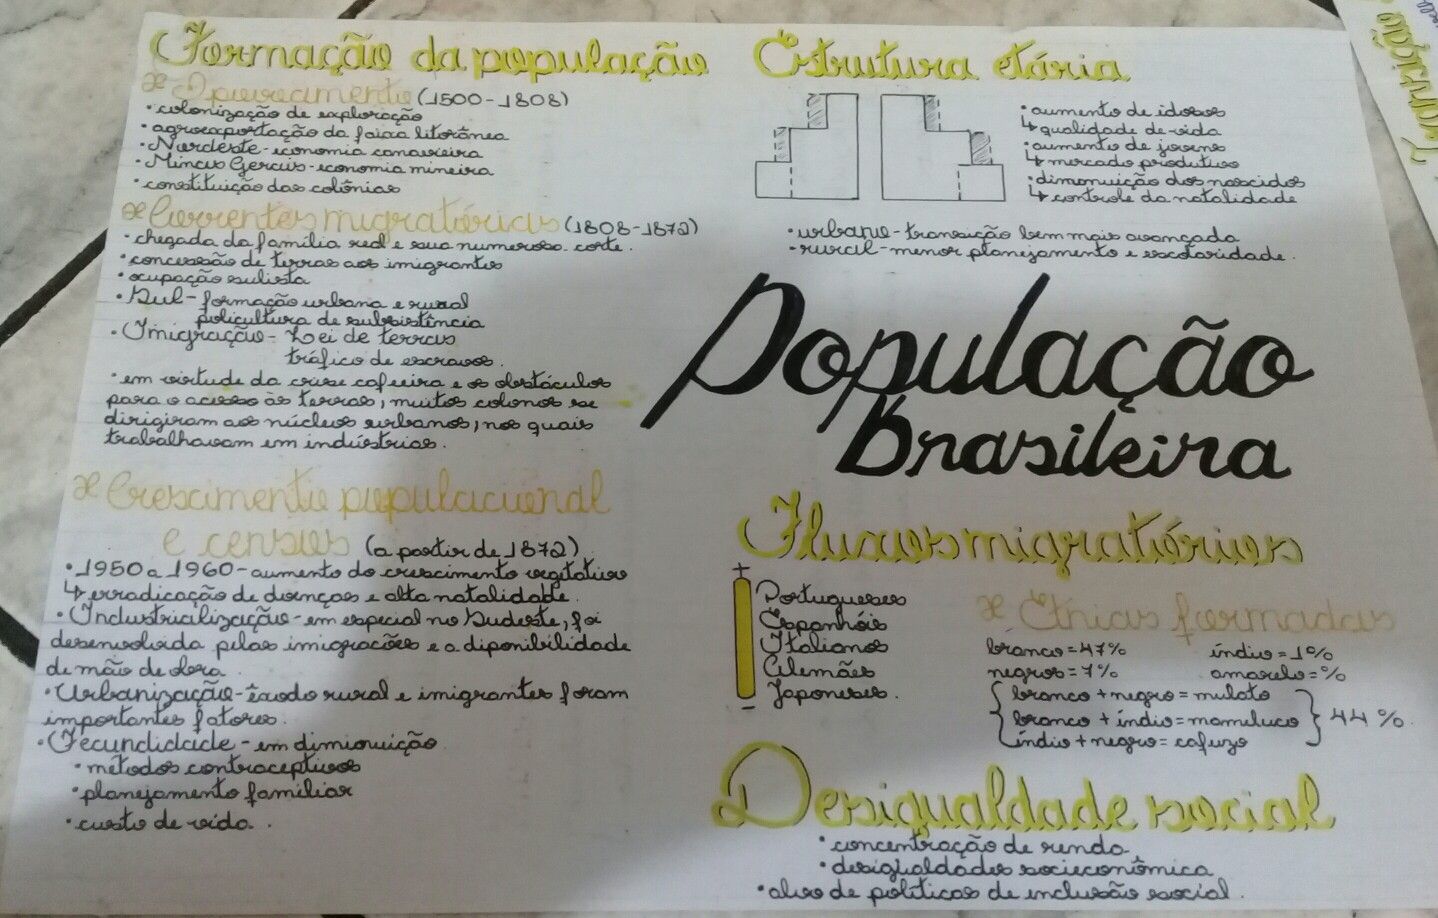 Formação da população
* Povoamento (1500-1808)
• colonização de exploração
• agroexportação da faixa litorânea
• Nordeste - economia canavieira
• Minas Gerais - economia mineira
• constituição das colônias
* Correntes migratórias (1808-1872)
• chegada da família real e sua numerosa corte.
• concessão de terras aos imigrantes
• ocupação sulista
• Sul - formação urbana e rural
policultura de subsistência
• Imigração - Lei de terras
tráfico de escravos.
• em virtude da crise cafeeira e os obstáculos
para o acesso às terras, muitos colonos se
dirigiram aos núcleos urbanos, nos quais
trabalhavam em indústrias.
* Crescimento populacional
e censos (a partir de 1872)
• 1950 a 1960 - aumento do crescimento vegetativo
↳ erradicação de doenças e alta natalidade.
• Industrialização - em especial no Sudeste, foi
desenvolvida pelas imigracões e a diponibilidade
de mão de obra.
• Urbanização - êxodo rural e imigrantes foram
importantes fatores.
• Fecundidade - em dimiouição
• métodos contraceptivos
• planejamento familiar
• custo de vida.
Estrutura etária
• aumento de idosos
↳ qualidade de vida
• aumento de jovens
↳ mercado produtivo
• dimonuição dos nascidos
↳ controle da natalidade
• urbano - transição bem mais avançada
• rural - menor planejamento e escolaridade.
População
Brasileira
Fluxos migratórios
+
Portugueses
Espanhóis
Italianos
Alemães
Japoneses.
-
* Etnias formadas
branco = 47% índio = 1%
negros = 7% amarelo = %
branco + negro = mulato
branco + índio = mameluco } 44%.
índio + negro = cafuzo
Desigualdade social
• concentração de renda
• desigualdades socieconômica
• alvo de políticas de inclusão social.